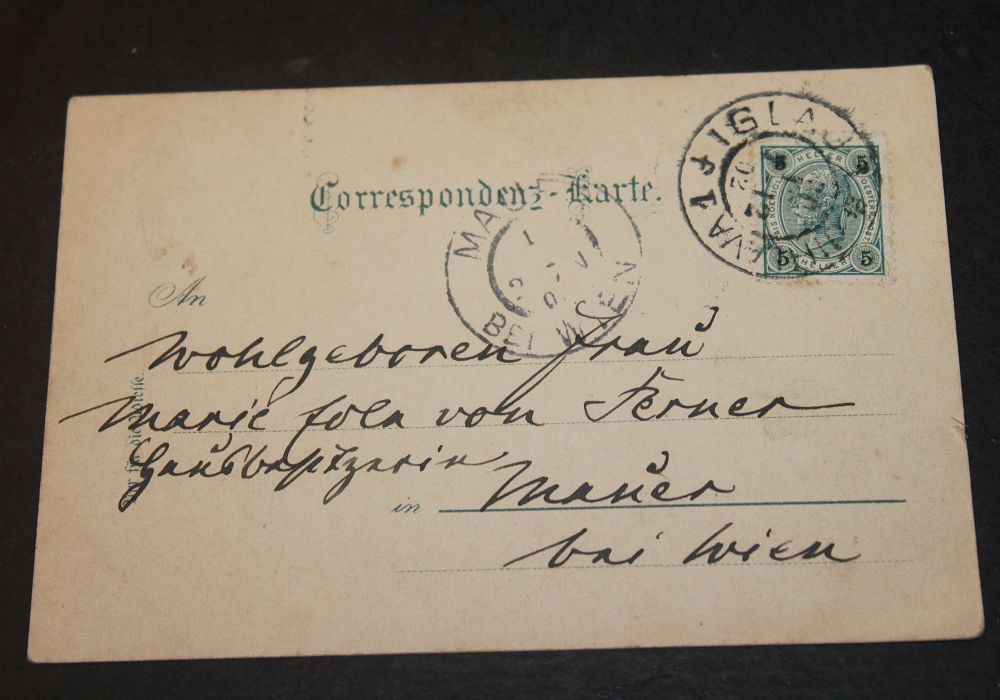 IGLAU
5 HELLER 5
5 HELLER 5
Correspondenz-Karte.
BEI WIEN
An
Wohlgeboren Frau
Marie Edle von Ferner
Hausbesitzerin
in Mauer
bei Wien
Nur für die Adresse.